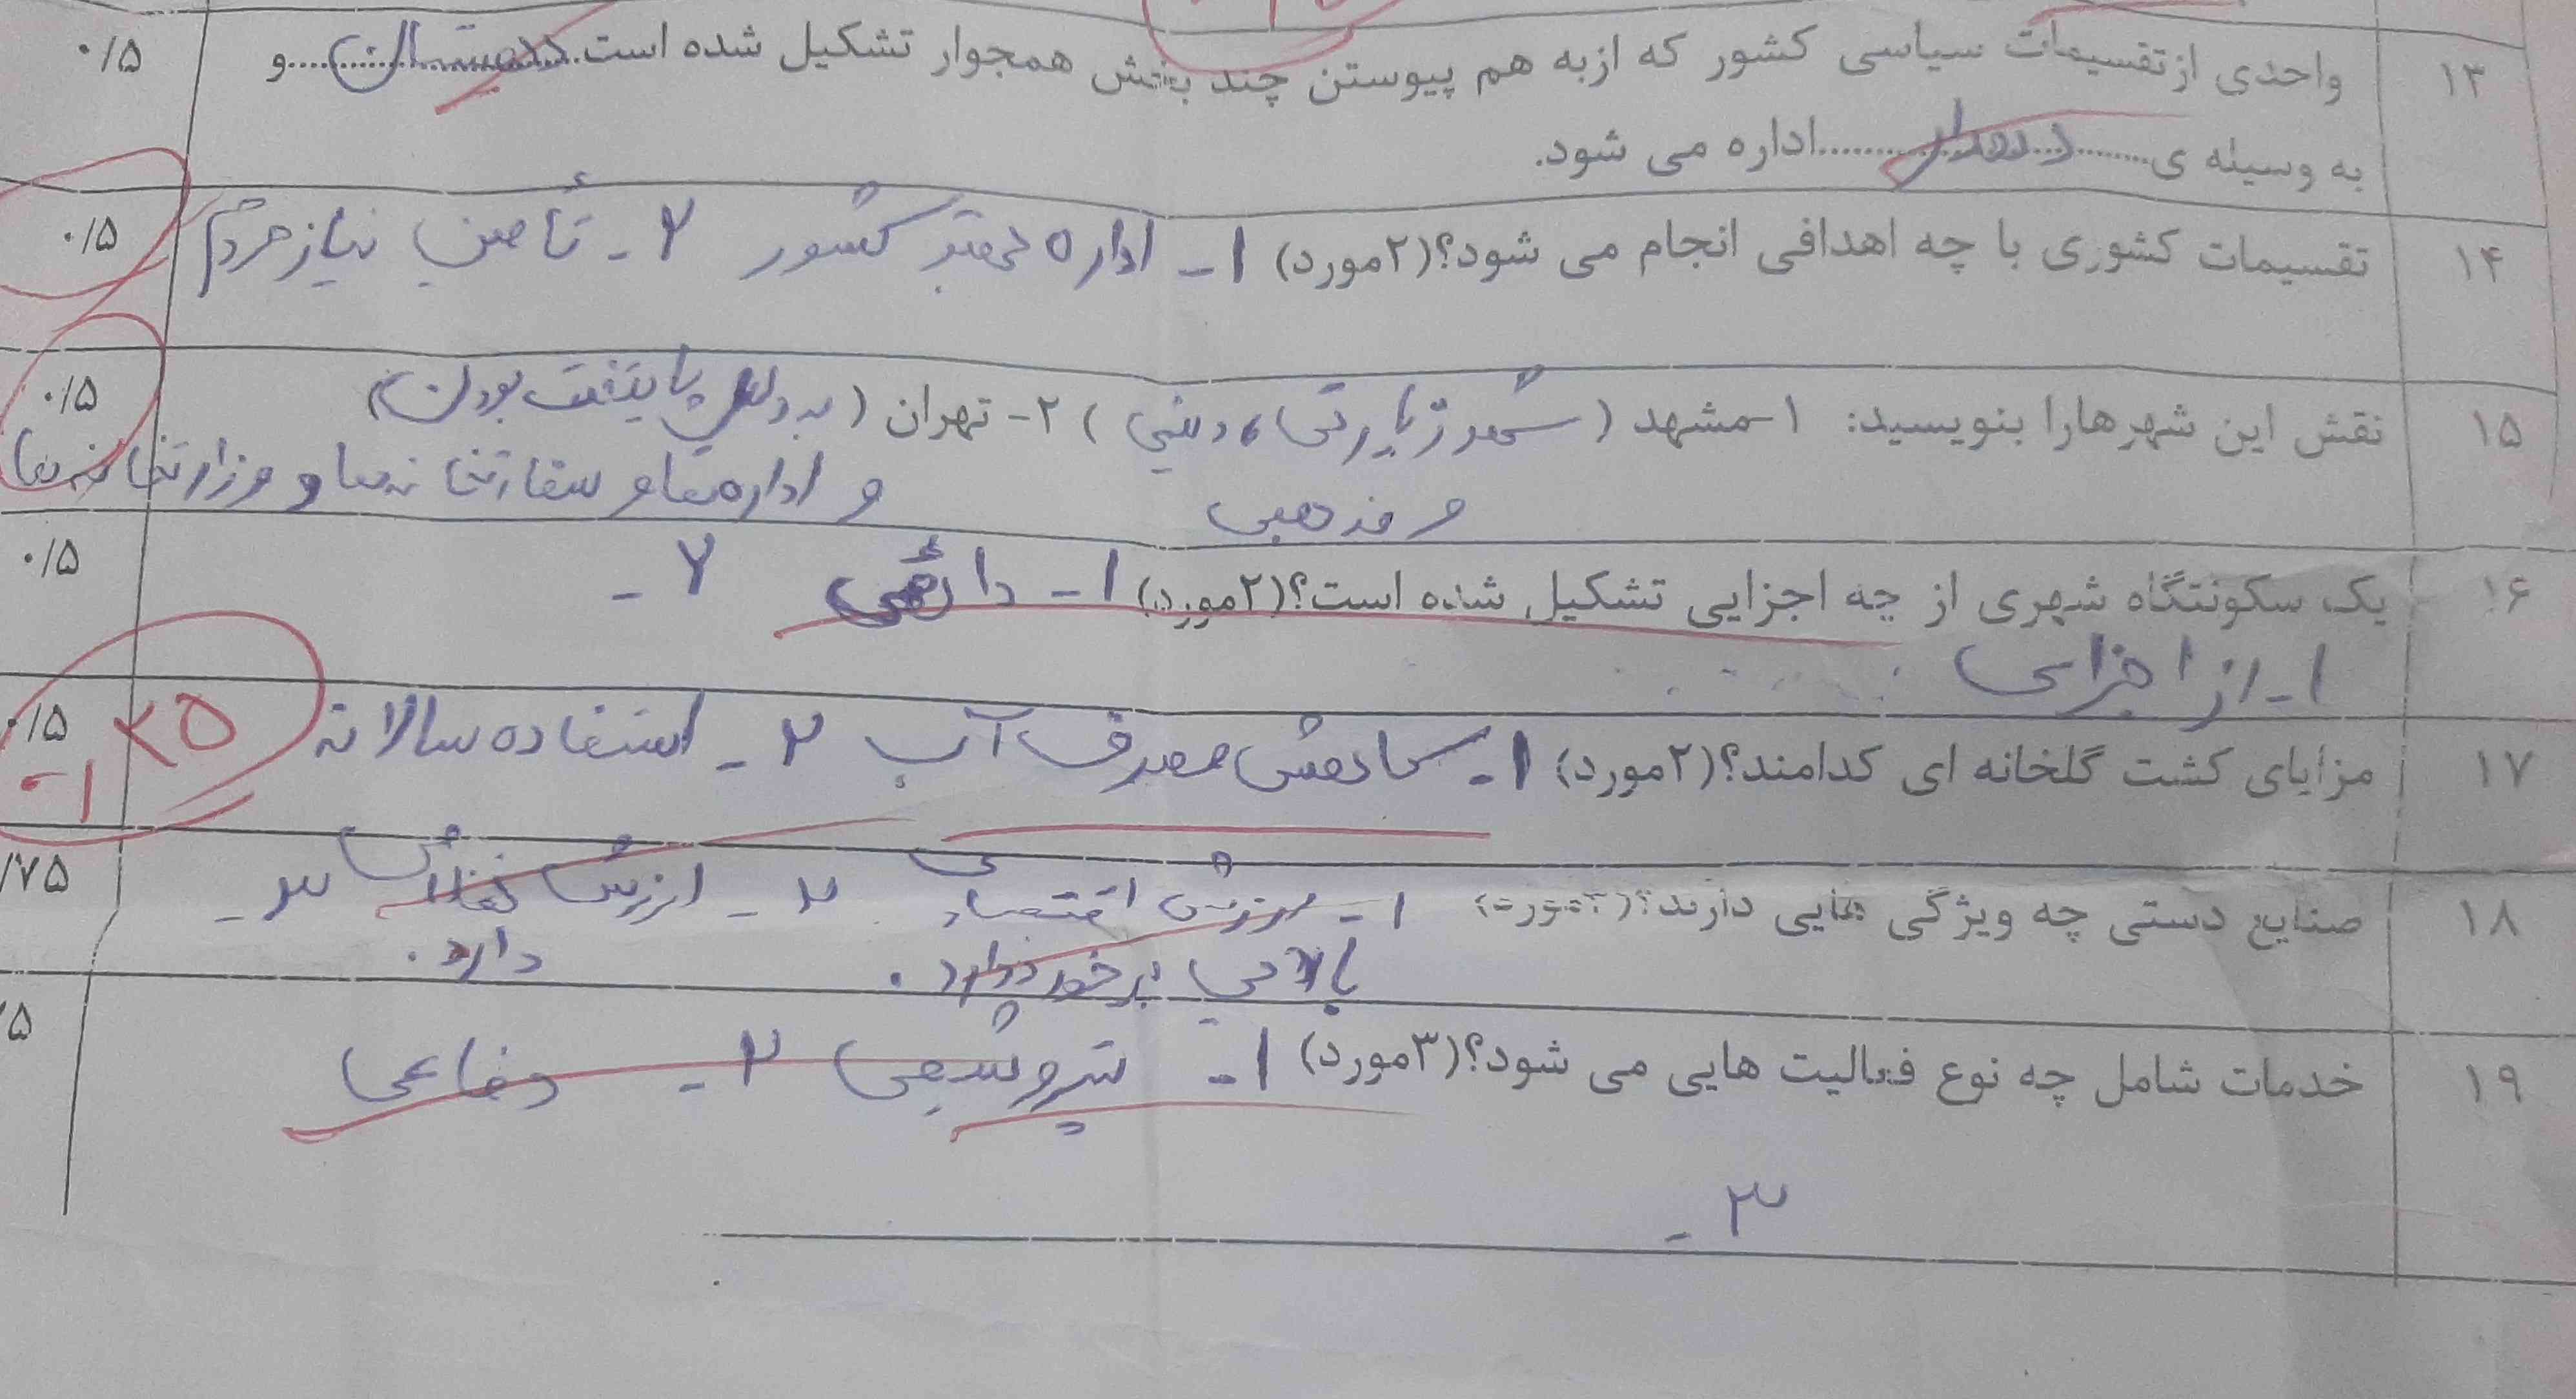 ۱۳ واحدی از تقسیمات سیاسی کشور که ازبه هم پیوستن چند بخش همجوار تشکیل شده است......دهستان......و ۰/۵
به وسیله ی......دهدار......اداره می شود.
۱۴ تقسیمات کشوری با چه اهدافی انجام می شود؟(۲مورد) ۱- اداره بهتر کشور ۲- تأمین نیاز مردم ۰/۵
۱۵ نقش این شهرهارا بنویسید: ۱-مشهد (شهر زیارتی، دینی) ۲- تهران (به دلیل پایتخت بودن) ۰/۵
و مذهبی و اداره‌ها و سفارتخانه‌ها و وزارتخانه‌ها
۱۶ یک سکونتگاه شهری از چه اجزایی تشکیل شده است؟(۲مورد) ۱- دائمی ۲- ۰/۵
۱- از اجزایی
۱۷ مزایای کشت گلخانه ای کدامند؟(۲مورد) ۱- کاهش مصرف آب ۲- استفاده سالانه ۰/۵
۲۵
-۱
۱۸ صنایع دستی چه ویژگی هایی دارند؟(۳مورد) ۱- ارزش اقتصادی ۲- ارزش ۳- /۷۵
بالایی برخوردارد. دارد.
۱۹ خدمات شامل چه نوع فعالیت هایی می شود؟(۳مورد) ۱- پتروشیمی ۲- دفاعی ۵
۳-